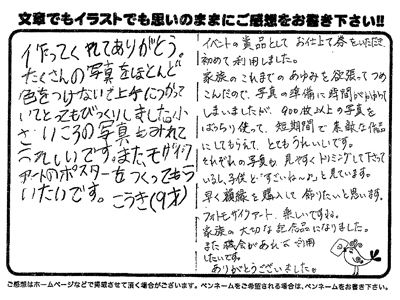 文章でもイラストでも思いのままにご感想をお書き下さい!!
作ってくれてありがとう。
たくさんの写真をほとんど
色をつけないで上手につかって
いてとってもびっくりしました。小
さいころの写真もみれて
うれしいです。また、モザイク
アートのポスターをつくってもら
いたいです。
こうき(9才)
イベントの賞品としてお仕立て券をいただき、
初めて利用しました。
家族のこれまでのあゆみを欲張ってつめ
こんだので、写真の準備に時間がかかって
しまいましたが、900枚以上の写真を
ばっちり使って、短期間で素敵な作品
にしてもらえて、とてもうれしいです。
それぞれの写真も、見やすくトリミングして下さって
いるし、子供と"すごいね〜"と見ています。
早く額縁を購入して飾りたいと思います。
フォトモザイクアート、楽しいですね。
家族の大切な記念品になりました。
また機会があればご利用
したいです。
ありがとうございました。
ご感想はホームページなどで掲載させて頂く場合がございます。ペンネームをご希望される場合は、ペンネームをお書き下さい。